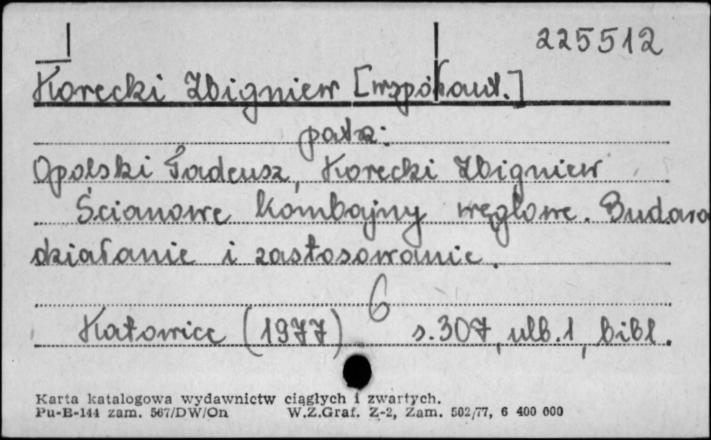 225512
Korecki Zbigniew [współaut.]
patrz:
Opolski Tadeusz, Korecki Zbigniew
Ścianowe kombajny węglowe. Budowa
działanie i zastosowanie.
6
Katowice (1977) s. 307, ulb. 1, bibl.
Karta katalogowa wydawnictw ciągłych i zwartych.
Pu-B-144 zam. 567/DW/On W.Z.Graf. Z-2, Zam. 502/77, 6 400 000